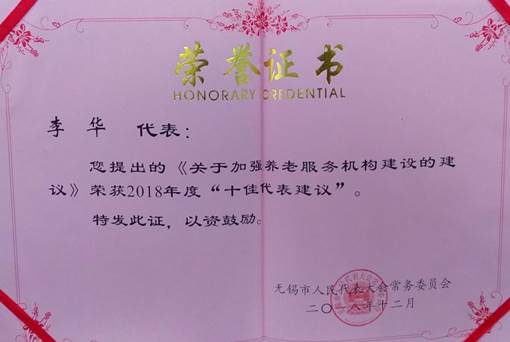 荣誉证书
HONORARY CREDENTIAL
李 华 代表：
您提出的《关于加强养老服务机构建设的建
议》荣获2018年度“十佳代表建议”。
特发此证，以资鼓励。
无锡市人民代表大会常务委员会
二〇一八年十二月